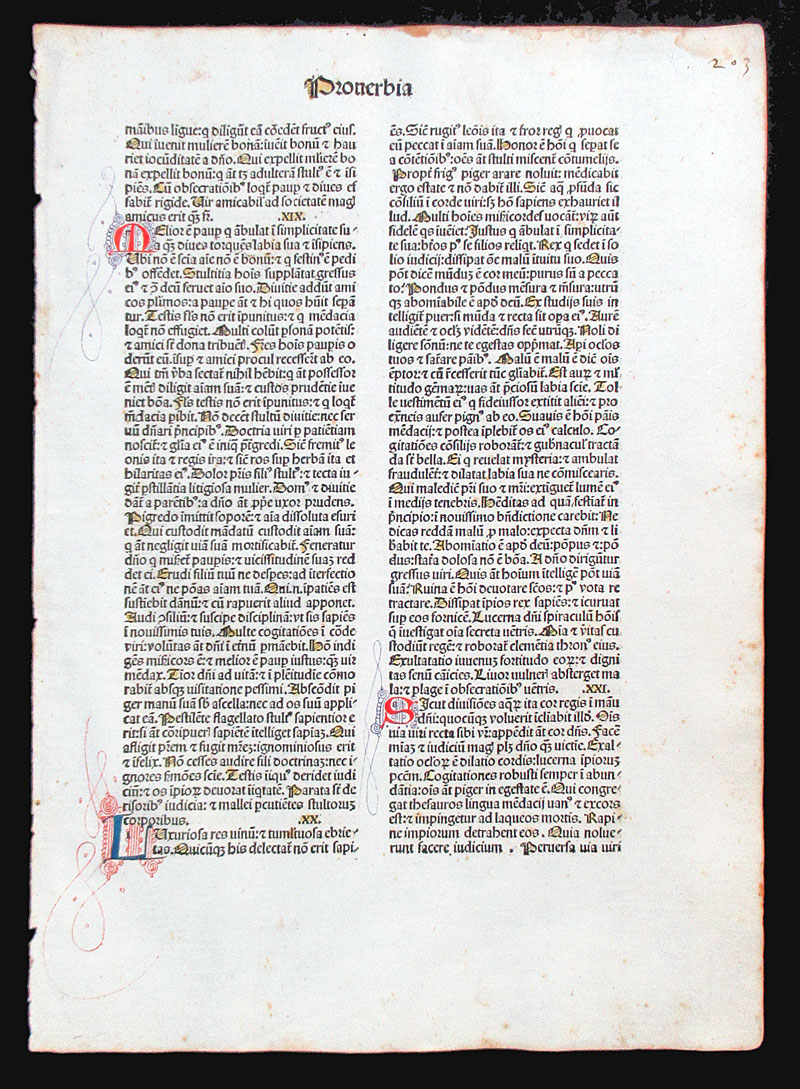 203
Prouerbia
mãibus ligue: q diligũt eã cõedẽt fructꝰ eius.
Qui iuenit mulierẽ bonã: iuẽit bonũ ⁊ hau
riet iocũditatẽ a dño. Qui expellit mlierẽ bo
nã expellit bonũ: q aũt tꝫ adulterã stultꝰ ẽ ⁊ isi
piẽs. Cũ obsecratiõibꝰ loqt̃ paup̱ ⁊ diues ef
fabit̃ rigide. Uir amicabilꝭ ad societatẽ magꝭ
amicus erit q̃ꝫ fr̃. .XIX.
MElior ẽ paup̱ q ãbulat ĩ simplicitate su⸗
a q̃ꝫ diues torquẽs labia sua ⁊ isipiens.
Ubi nõ ẽ scĩa aĩe nõ ẽ bonũ: ⁊ q festinꝰ ẽ pedi
bꝰ offẽdet. Stultitia hoĩs supplãtat gressus
eiꝰ ⁊ ꝯ̃ deũ feruet aĩo suo. Diuitie addũt ami
cos plĩmos: a paupe aũt ⁊ hi quos hũit sepã
tur. Testis fls̃s nõ erit ipunitus: ⁊ q mẽdacia
loqt̃ nõ effugiet. Multi colũt psonã potẽtꝭ:
⁊ amici sĩ dona tribuẽtꝭ. Fr̃es hoĩs paupis o
derũt eũ. isup̱ ⁊ amici procul recesserũt ab eo.
Qui tm̃ ỹba sectat̃ nihil hẽbit: q aũt possessor
ẽ mẽtꝭ diligit aiam suã: ⁊ custos prudẽtie iue
niet bõa. Fls̃ testis nõ erit ipunitus: ⁊ q loqt̃
mẽdacia pibit. Nõ decẽt stultũ diuitie: nec ser
uũ dñari p̃ncipibꝰ. Doctrĩa viri p̱ patiẽtiam
noscit̃: ⁊ gl̃ia eiꝰ ẽ iniq̃ p̃tgredi. Sic̃ fremitꝰ le
onis ita ⁊ regis ira: ⁊ sic̃ ros sup̱ herbã ita et
hilaritas eiꝰ. Dolor pr̃is filiꝰ stultꝰ: ⁊ tecta iu⸗
git̃ pstillãtia litigiosa mulier. Domꝰ ⁊ diuitie
dãt̃ a parẽtibꝰ: a dño aũt p̱p̃e uxor prudens.
Pigredo ĩmittit soporẽ: ⁊ aĩa dissoluta esuri
et. Qui custodit mãdatũ custodit aiam suã:
q aũt negligit uiã suã mortificabit̃. Feneratur
dño q mĩseret̃ paupis: ⁊ uicissitudinẽ suaꝫ red
det ei. Erudi filiũ tuũ ne despes: ad iterfectio
nẽ aũt eiꝰ ne põas aiam tuã. Qui.n.ipatiẽs est
sustiebit dãnũ: ⁊ cũ rapuerit aliud apponet.
Audi ꝯsiliũ: ⁊ suscipe disciplinã: vt sis sapiẽs
ĩ nouissimis tuis. Multe cogitatiões ĩ cõde
viri: volũtas aũt dñi ĩ etñũ pmãebit. Hõ indi
gẽs mĩsericors ẽ: ⁊ melior ẽ paup̱ iustus: q̃ꝫ uir
mẽdax. Timor dñi ad uitã: ⁊ ĩ plẽitudie cõmo
rabit̃ absqꝫ uisitatione pessimi. Abscõdit pi
ger manũ suã sb̃ ascella: nec ad os suũ appli⸗
cat eã. Pestilẽte flagellato stultꝰ sapientior e
rit: si aũt corripueris sapiẽtẽ ĩtelliget sapĩaꝫ. Qui
affligit pr̃em ⁊ fugit mr̃eꝫ: ignominiosus erit
⁊ ĩfelix. Nõ cesses audire fili doctrinaꝫ: nec i⸗
gnores fmões scĩe. Testis iĩquꝰ deridet iudi
ciũ: ⁊ os ipioꝝ deuorat iĩqtatẽ. Parata st̃ de
risoribꝰ iudicia: ⁊ mallei pcutiẽtes stultoruꝫ
corporibus. .XX.
LUxuriosa res uinũ: ⁊ tumltuosa ebrie⸗
tas. Quicũqꝫ his delectat̃ nõn erit sapi⸗
ẽs. Sic̃ rugitꝰ leõis ita ⁊ t̃ror regꝭ q ꝓuocat
eũ peccat ĩ aiam suã. Honor ẽ hõĩ q sepat se
a cõtẽtiõibꝰ: oẽs aũt stulti miscent̃ cõtumelijs.
Propt̃ frigꝰ piger arare noluit: mẽdicabit
ergo estate ⁊ nõ dabit̃ illi. Sic̃ aq̃ ꝓfũda sic
cõsiliũ ĩ corde viri: sꝫ hõ sapiens exhauriet il
lud. Multi hoĩes misericordes uocãt̃: virũ aũt
fidelẽ qs iuẽiet? Justus q ãbulat ĩ simplicita⸗
te sua: btõs pꝰ se filios relĩqt. Rex q̃ sedet ĩ so
lio iudicij: dissipat oẽ malũ ĩtuitu suo. Quis
põt dicẽ mũdũꝫ ẽ cor meũ: purus sũ a pecca
to? Pondus ⁊ põdus mẽsura ⁊ mẽsura: utrũ
qꝫ abomĩabile ẽ apd̃ deũ. Ex studijs suis in
telligit̃ puer: si mũda ⁊ recta sĩt oꝑa eiꝰ. Aurẽ
audiẽtẽ ⁊ oclꝫ vidẽtẽ: dñs fec̃ utrũqꝫ. Noli di
ligere sõnũ: ne te egestas opp̃mat. Apĩ oclos
tuos ⁊ sat̃are pãibꝰ. Malũ ẽ malũ ẽ dic̃ oĩs
ẽptor: ⁊ cũ rẽcesserit tũc gl̃iabit̃. Est auꝝ ⁊ ml̃
titudo gẽmaꝝ: uas aũt p̃ciosũ labia scĩe. Tol⸗
le uestimẽtũ eiꝰ q fideiussor extitit aliẽi: ⁊ pro
extrẽis aufer pignꝰ ab eo. Suauis ẽ hõĩ pãis
mẽdacij: ⁊ postea iplebit̃ os eiꝰ calculo. Co⸗
gitatiões cõsilijs roborãt̃: ⁊ gubñaculꝭ tractã
da st̃ bella. Ei q reuelat mysteria: ⁊ ambulat
fraudulẽt̃: ⁊ dilatat labia sua ne cõmiscearis.
Qui maledic̃ pr̃i suo ⁊ mr̃i: extĩguet̃ lumẽ eiꝰ
ĩ medijs tenebris. Hẽditas ad quã festĩat̃ in
p̃ncipio: ĩ nouissimo bñdictione carebit: Ne
dicas reddã malũ ꝓ malo: expecta dñm ⁊ li
b̃abit te. Abomiatio ẽ apd̃ deũ: põpus ⁊ põ⸗
dus: stat̃a dolosa nõ ẽ bõa. A dño dirigũtur
gressus uiri. Quis aũt hoĩum ĩtelligẽ põt uiã
suã? Ruina ẽ hõĩ deuotare sc̃os: ⁊ pꝰ vota re
tractare. Dissipat ipios rex sapiẽs: ⁊ icuruat
sup̱ eos fornicẽ. Lucerna dñi spiraculũ hõĩs
q̃ iuestigat oĩa secreta uẽtris. Mĩa ⁊ ỹitas cu
stodiũt regẽ: ⁊ roborat̃ clemẽtia thronꝰ eius.
Exultatatio iuuenuꝫ fortitudo eoꝝ: ⁊ digni
tas senũ cãicies. Liuor vulnerꝭ absterget ma
la: ⁊ plage ĩ obsecratiõibꝰ vẽtris. .XXI.
SIcut diuisiões aq̃ꝝ ita cor regis ĩ mãu
dñi: quocũqꝫ voluerit ĩcliabit illd̃. Oĩs
uia uiri recta sibi vr̃: appẽdit aũt cor dñs. Facẽ
mĩaꝫ ⁊ iudicium magꝭ plꝫ dño q̃ꝫ victie. Exal⸗
tatio ocl̃oꝝ ẽ dilatio cordis: lucerna ipioruꝫ
pcc̃m. Cogitationes robusti semper ĩ abun⸗
dãtia: oĩs aũt piger in egestate ẽ. Qui congre⸗
gat thesauros lingua mẽdacij uanꝰ ⁊ excors
est: ⁊ impingetur ad laqueos mortis. Rapi⸗
ne impiorum detrahent eos. Quia nolue⸗
runt facere iudicium . Peruersa via viri